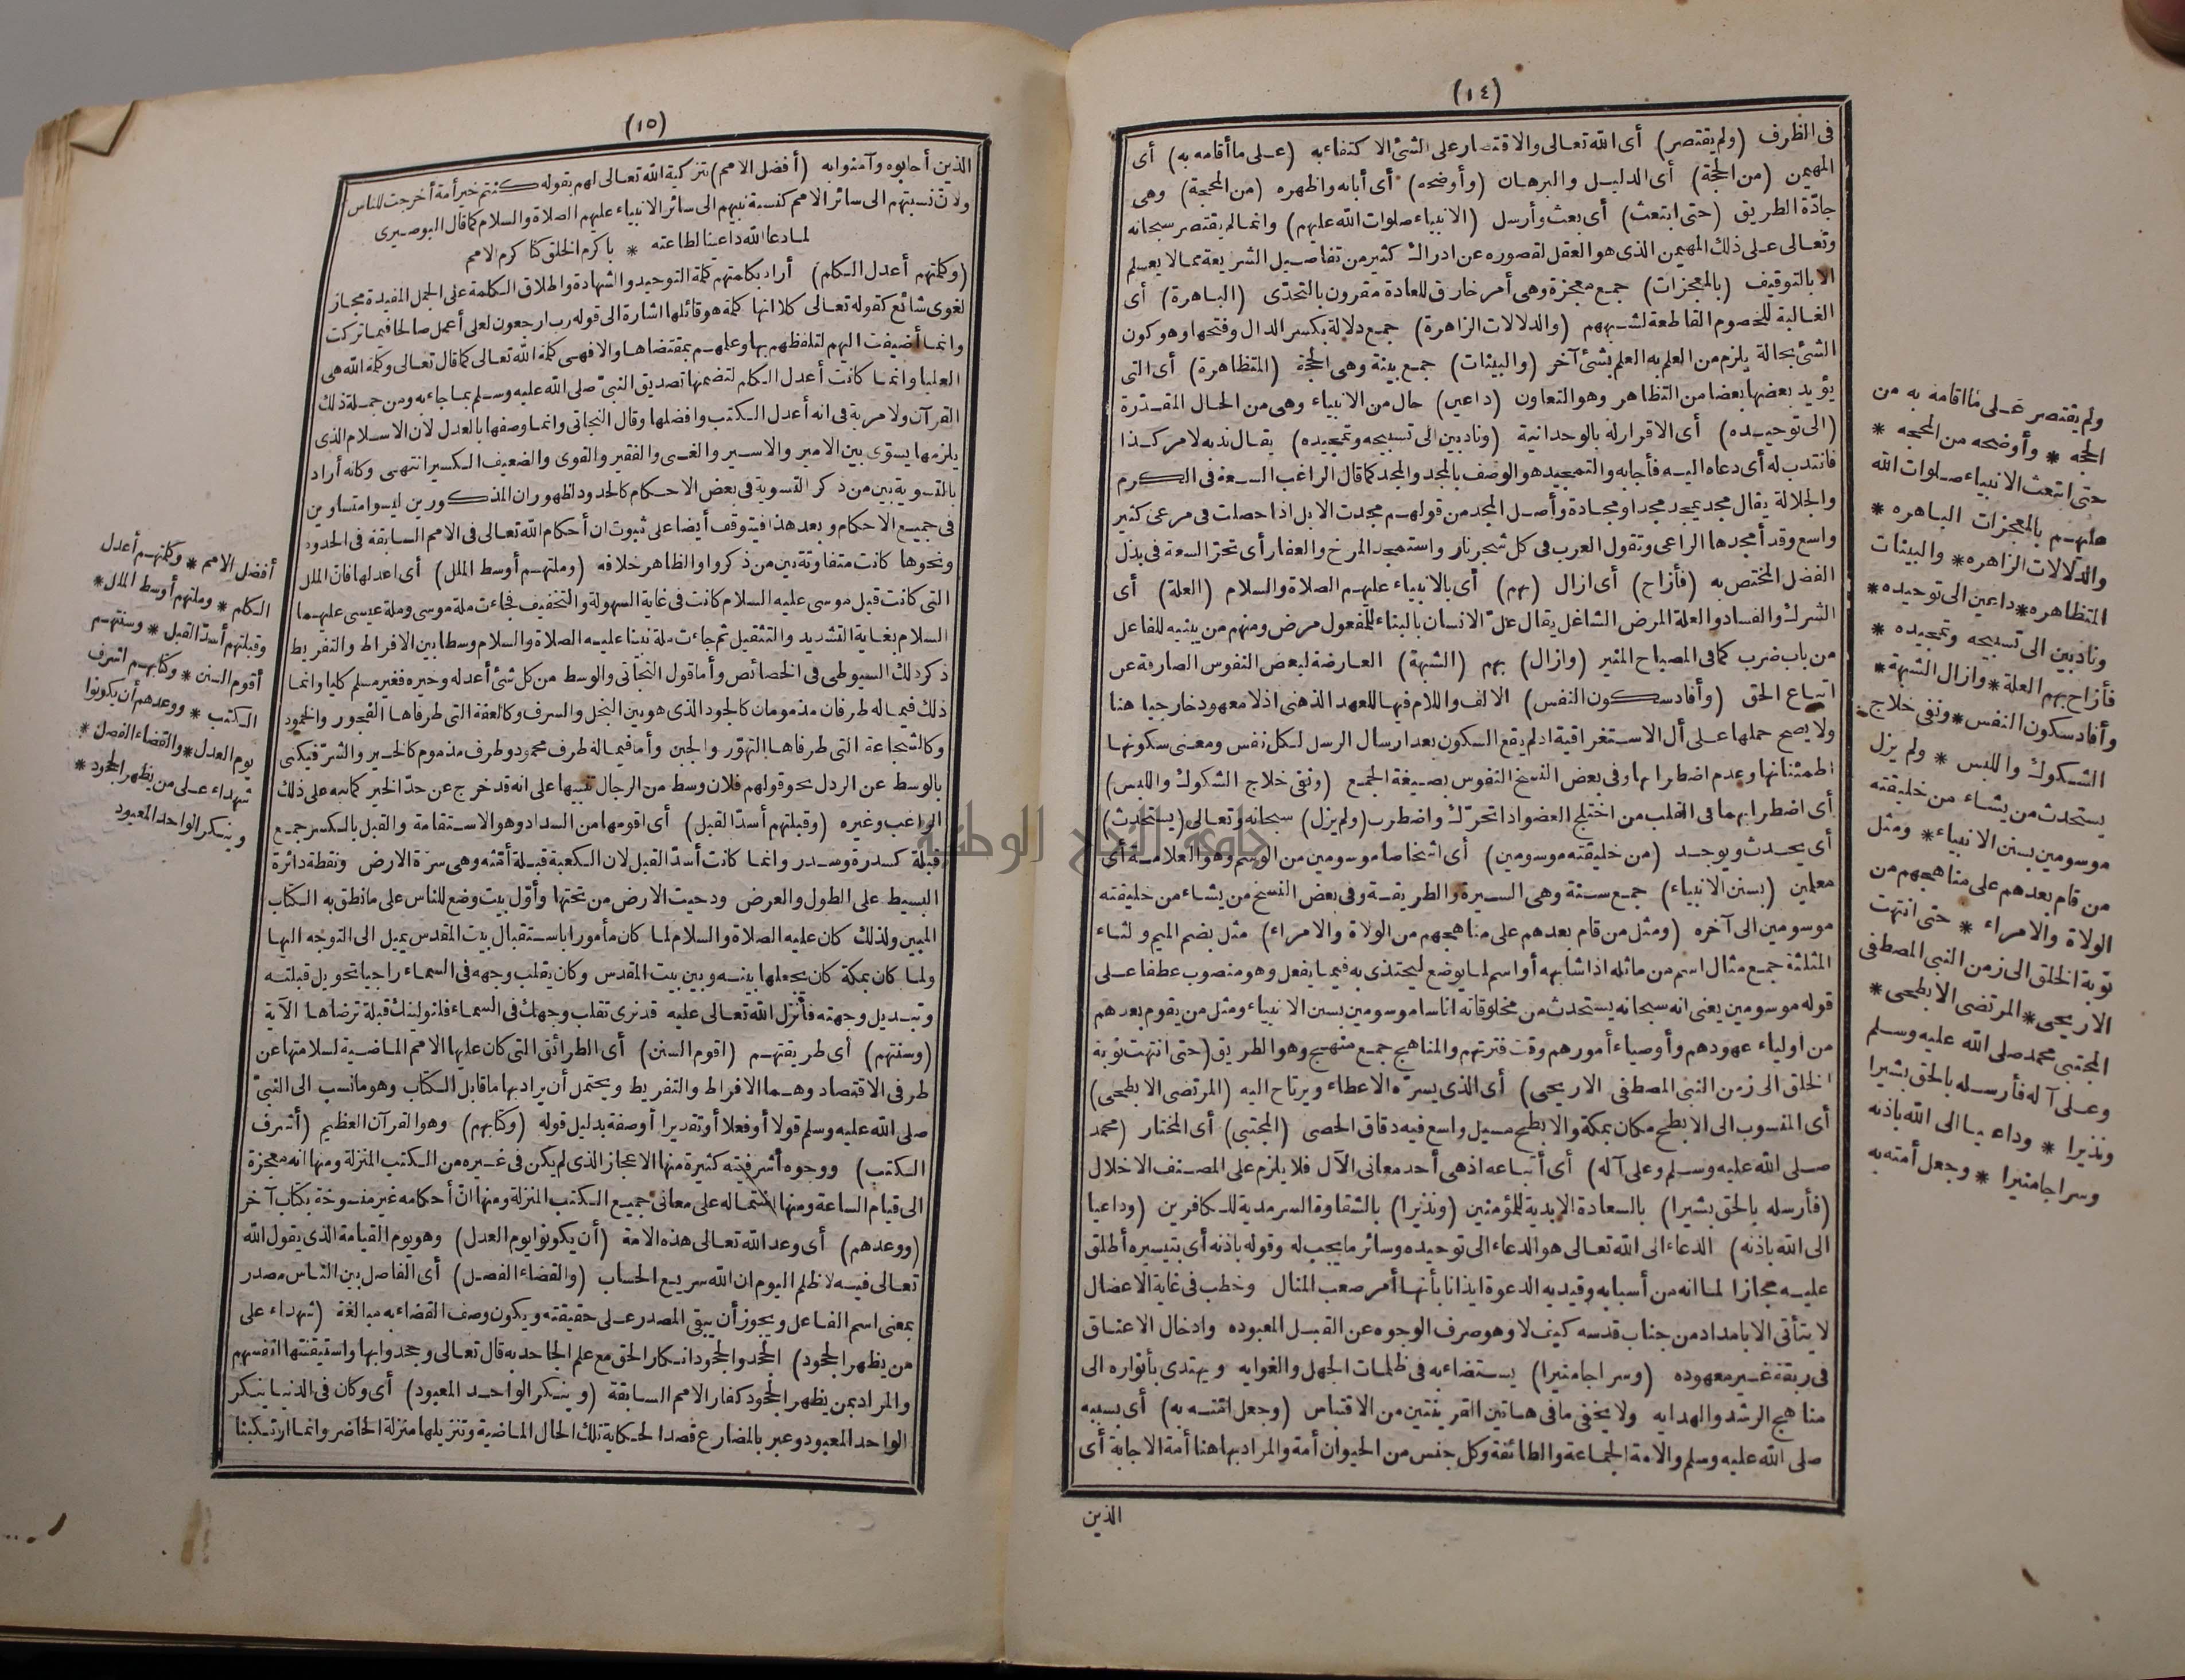 (١٤)
فى الظرف (ولم يقتصر) أى الله تعالى والاقتصار على الشئ الاكتفاء به (على ما أقامه به) أى
المهيمن (من الحجة) أى الدليل والبرهان (وأوضحه) أى أبانه واظهره (من المحجة) وهى
جادّة الطريق (حتى ابتعث) أى بعث وأرسل (الانبياء صلوات الله عليهم) وانما لم يقتصر سبحانه
وتعالى على ذلك المهيمن الذى هو العقل لقصوره عن ادراك كثير من تفاصيل الشريعة مما لا يعلم
الا بالتوقيف (بالمعجزات) جمع معجزة وهى أمر خارق للعادة مقرون بالتحدّى (الباهرة) أى
الغالبة للخصوم القاطعة لشبههم (والدلالات الزاهرة) جمع دلالة بكسر الدال وفتحها وهو كون
الشئ بحالة يلزم من العلم به العلم بشئ آخر (والبينات) جمع بينة وهى الحجة (المتظاهرة) أى التى
يؤيد بعضها بعضا من التظاهر وهو التعاون (داعين) حال من الانبياء وهى من الحال المقدّرة
(الى توحيده) أى الاقرار له بالوحدانية (ونادبين الى تسبيحه وتمجيده) يقال ندبه لامر كذا
فانتدب له أى دعاه اليه فأجابه والتمجيد هو الوصف بالمجد والمجد كما قال الراغب السعة فى الكرم
والجلالة يقال مجد يمجد مجدا ومجادة وأصل المجد من قولهم مجدت الابل اذا حصلت فى مرعى كثير
واسع وقد أمجدها الراعى وتقول العرب فى كل شجر نار واستمجد المرخ والعفار أى تحرّ السعة فى بذل
الفضل المختص به (فأزاح) أى ازال (بهم) أى بالانبياء عليهم الصلاة والسلام (العلة) أى
الشرك والفساد والعلة المرض الشاغل يقال علّ الانسان بالبناء للمفعول مرض ومنهم من يبنيه للفاعل
من باب ضرب كما فى المصباح المنير (وازال) بهم (الشبهة) العارضة لبعض النفوس الصارفة عن
اتباع الحق (وأفاد سكون النفس) الالف واللام فيها للعهد الذهنى اذ لا معهود خارجيا هنا
ولا يصح حملها على أل الاستغراقية اذ لم يقع السكون بعد ارسال الرسل لكل نفس ومعنى سكونها
اطمئنانها وعدم اضطرابها وفى بعض النسخ النفوس بصيغة الجمع (ونفى خلاج الشكوك واللبس)
أى اضطرابهما فى القلب من اختلج العضو اذا تحرّك واضطرب (ولم يزل) سبحانه وتعالى (يستحدث)
أى يحدث ويوجد (من خليقته موسومين) أى اشخاصا موسومين من الوسم وهو العلامة أى
معلمين (بسنن الانبياء) جمع سنة وهى السيرة والطريقة وفى بعض النسخ من يشاء من خليقته
موسومين الى آخره (ومثل من قام بعدهم على مناهجهم من الولاة والامراء) مثل بضم الميم والثاء
المثلثة جمع مثال اسم من ماثله اذا شابهه أو اسم لما يوضع ليحتذى به فيما يفعل وهو منصوب عطفا على
قوله موسومين يعنى انه سبحانه يستحدث من مخلوقاته اناسا موسومين بسنن الانبياء ومثل من يقوم بعدهم
من اولياء عهودهم وأوصياء أمورهم وقت فترتهم والمناهج جمع منهج وهو الطريق (حتى انتهت نوبة
الخلق الى زمن النبى المصطفى الاريحى) أى الذى يسرّه الاعطاء ويرتاح اليه (المرتضى الابطحى)
أى المنسوب الى الابطح مكان بمكة والابطح مسيل واسع فيه دقاق الحصى (المجتبى) أى المختار (محمد
صلى الله عليه وسلم وعلى آله) أى أتباعه اذ هى أحد معانى الآل فلا يلزم على المصنف الاخلال
(فأرسله بالحق بشيرا) بالسعادة الابدية للمؤمنين (ونذيرا) بالشقاوة السرمدية للكافرين (وداعيا
الى الله باذنه) الدعاء الى الله تعالى هو الدعاء الى توحيده وسائر ما يجب له وقوله باذنه أى بتيسيره أطلق
عليه مجازا لما انه من أسبابه وقيد به الدعوة ايذانا بأنها أمر صعب المنال وخطب فى غاية الاعضال
لا يتأتى الا بامداد من جناب قدسه كيف لا وهو صرف الوجوه عن القبل المعبوده وادخال الاعناق
فى ربقة غير معهوده (وسراجا منيرا) يستضاء به فى ظلمات الجهل والغوايه ويهتدى بأنواره الى
مناهج الرشد والهدايه ولا يخفى ما فى هاتين القرينتين من الاقتباس (وجعل امّته به) أى بسببه
صلى الله عليه وسلم والامة الجماعة والطائفة وكل جنس من الحيوان أمة والمراد بها هنا أمة الاجابة أى
الذين
ولم يقتصر على ما اقامه به من
الحجه * وأوضحه من المحجه *
حتى ابتعث الانبياء صلوات الله
عليهم بالمعجزات الباهره *
والدّلالات الزاهره * والبينات
المتظاهره * داعين الى توحيده *
ونادبين الى تسبيحه وتمجيده *
فأزاح بهم العلة * وازال الشبهة *
وأفاد سكون النفس * ونفى خلاج
الشكوك واللبس * ولم يزل
يستحدث من يشاء من خليقته
موسومين بسنن الانبياء * ومثل
من قام بعدهم على مناهجهم من
الولاة والامراء * حتى انتهت
نوبة الخلق الى زمن النبى المصطفى
الاريحى * المرتضى الابطحى *
المجتبى محمد صلى الله عليه وسلم
وعلى آله فأرسله بالحق بشيرا
ونذيرا * وداعيا الى الله باذنه
وسراجا منيرا * وجعل أمته به
(١٥)
الذين أجابوه وآمنوا به (أفضل الامم) بتزكية الله تعالى لهم بقوله كنتم خير أمة أخرجت للناس
ولانّ نسبتهم الى سائر الامم كنسبة نبيهم الى سائر الانبياء عليهم الصلاة والسلام كما قال البوصيرى
لما دعا الله داعينا لطاعته * باكرم الخلق كنا كرم الامم
(وكلمتهم أعدل الكلم) أراد بكلمتهم كلمة التوحيد والشهادة واطلاق الكلمة على الجمل المفيدة مجاز
لغوى شائع كقوله تعالى كلا انها كلمة هو قائلها اشارة الى قوله رب ارجعون لعلى أعمل صالحا فيما تركت
وانما أضيفت اليهم لتلفظهم بها وعلمهم بمقتضاها والا فهى كلمة الله تعالى كما قال تعالى وكلمة الله هى
العليا وانما كانت أعدل الكلم لتضمنها تصديق النبىّ صلى الله عليه وسلم بما جاء به ومن جملة ذلك
القرآن ولا مرية فى انه أعدل الكتب وافضلها وقال النجاتى وانما وصفها بالعدل لان الاسلام الذى
يلزمها يسوّى بين الامير والاسير والغنى والفقير والقوى والضعيف الكسير انتهى وكانه أراد
بالتسوية بين من ذكر التسوية فى بعض الاحكام كالحدود لظهور ان المذكورين ليسوا متساوين
فى جميع الاحكام وبعد هذا فيتوقف أيضا على ثبوت ان أحكام الله تعالى فى الامم السابقة فى الحدود
ونحوها كانت متفاوتة بين من ذكروا والظاهر خلافه (وملتهم أوسط الملل) أى اعدلها فانّ الملل
التى كانت قبل موسى عليه السلام كانت فى غاية السهولة والتخفيف فجاءت ملة موسى وملة عيسى عليهما
السلام بغاية التشديد والتثقيل ثم جاءت ملة نبينا عليه الصلاة والسلام وسطا بين الافراط والتفريط
ذكر ذلك السيوطى فى الخصائص وأما قول النجاتى والوسط من كل شئ أعدله وخيره فغير مسلم كليا وانما
ذلك فيما له طرفان مذمومان كالجود الذى هو بين البخل والسرف وكالعفة التى طرفاها الفجور والخمود
وكالشجاعة التى طرفاها التهوّر والجبن وأما فيما له طرف محمود وطرف مذموم كالخير والشرّ فيكنى
بالوسط عن الرذل نحو قولهم فلان وسط من الرجال تنبيها على انه قد خرج عن حدّ الخير كما نبه على ذلك
الراغب وغيره (وقبلتهم أسدّ القبل) أى اقومها من السداد وهو الاستقامة والقبل بالكسر جمع
قبلة كسدرة وسدر وانما كانت أسدّ القبل لان الكعبة قبلة أمّته وهى سرّة الارض ونقطة دائرة
البسيط على الطول والعرض ودحيت الارض من تحتها وأوّل بيت وضع للناس على ما نطق به الكتاب
المبين ولذلك كان عليه الصلاة والسلام لما كان مأمورا باستقبال بيت المقدس يميل الى التوجه اليها
ولما كان بمكة كان يجعلها بينه وبين بيت المقدس وكان يقلب وجهه فى السماء راجيا تحويل قبلته
وتبديل وجهته فأنزل الله تعالى عليه قد نرى تقلب وجهك فى السماء فلنولينك قبلة ترضاها الآية
(وسنتهم) أى طريقتهم (اقوم السنن) أى الطرائق التى كان عليها الامم الماضية لسلامتها عن
طرفى الاقتصاد وهما الافراط والتفريط ويحتمل أن يراد بها ما قابل الكتاب وهو ما نسب الى النبىّ
صلى الله عليه وسلم قولا أو فعلا أو تقديرا أو صفة بدليل قوله (وكتابهم) وهو القرآن العظيم (أشرف
الكتب) ووجوه أشرفيته كثيرة منها الاعجاز الذى لم يكن فى غيره من الكتب المنزلة ومنها انه معجزة
الى قيام الساعة ومنها اشتماله على معانى جميع الكتب المنزلة ومنها انّ أحكامه غير منسوخة بكتاب آخر
(ووعدهم) أى وعد الله تعالى هذه الامة (أن يكونوا يوم العدل) وهو يوم القيامة الذى يقول الله
تعالى فيه لا ظلم اليوم ان الله سريع الحساب (والقضاء الفصل) أى الفاصل بين الناس مصدر
بمعنى اسم الفاعل ويجوز أن يبقى المصدر على حقيقته ويكون وصف القضاء به مبالغة (شهداء على
من يظهر الجحود) الجحد والجحود انكار الحق مع علم الجاحد به قال تعالى وجحدوا بها واستيقنتها انفسهم
والمراد بمن يظهر الجحود كفار الامم السابقة (وينكر الواحد المعبود) أى وكان فى الدنيا ينكر
الواحد المعبود وعبر بالمضارع قصدا لحكاية تلك الحال الماضية وتنزيلها منزلة الحاضر وانما ارتكبنا
أفضل الامم * وكلمتهم أعدل
الكلم * وملتهم أوسط الملل *
وقبلتهم أسدّ القبل * وسنتهم
أقوم السنن * وكتابهم اشرف
الكتب * ووعدهم أن يكونوا
يوم العدل * والقضاء الفصل *
شهداء على من يظهر الجحود *
وينكر الواحد المعبود
جامعة النجاح الوطنية